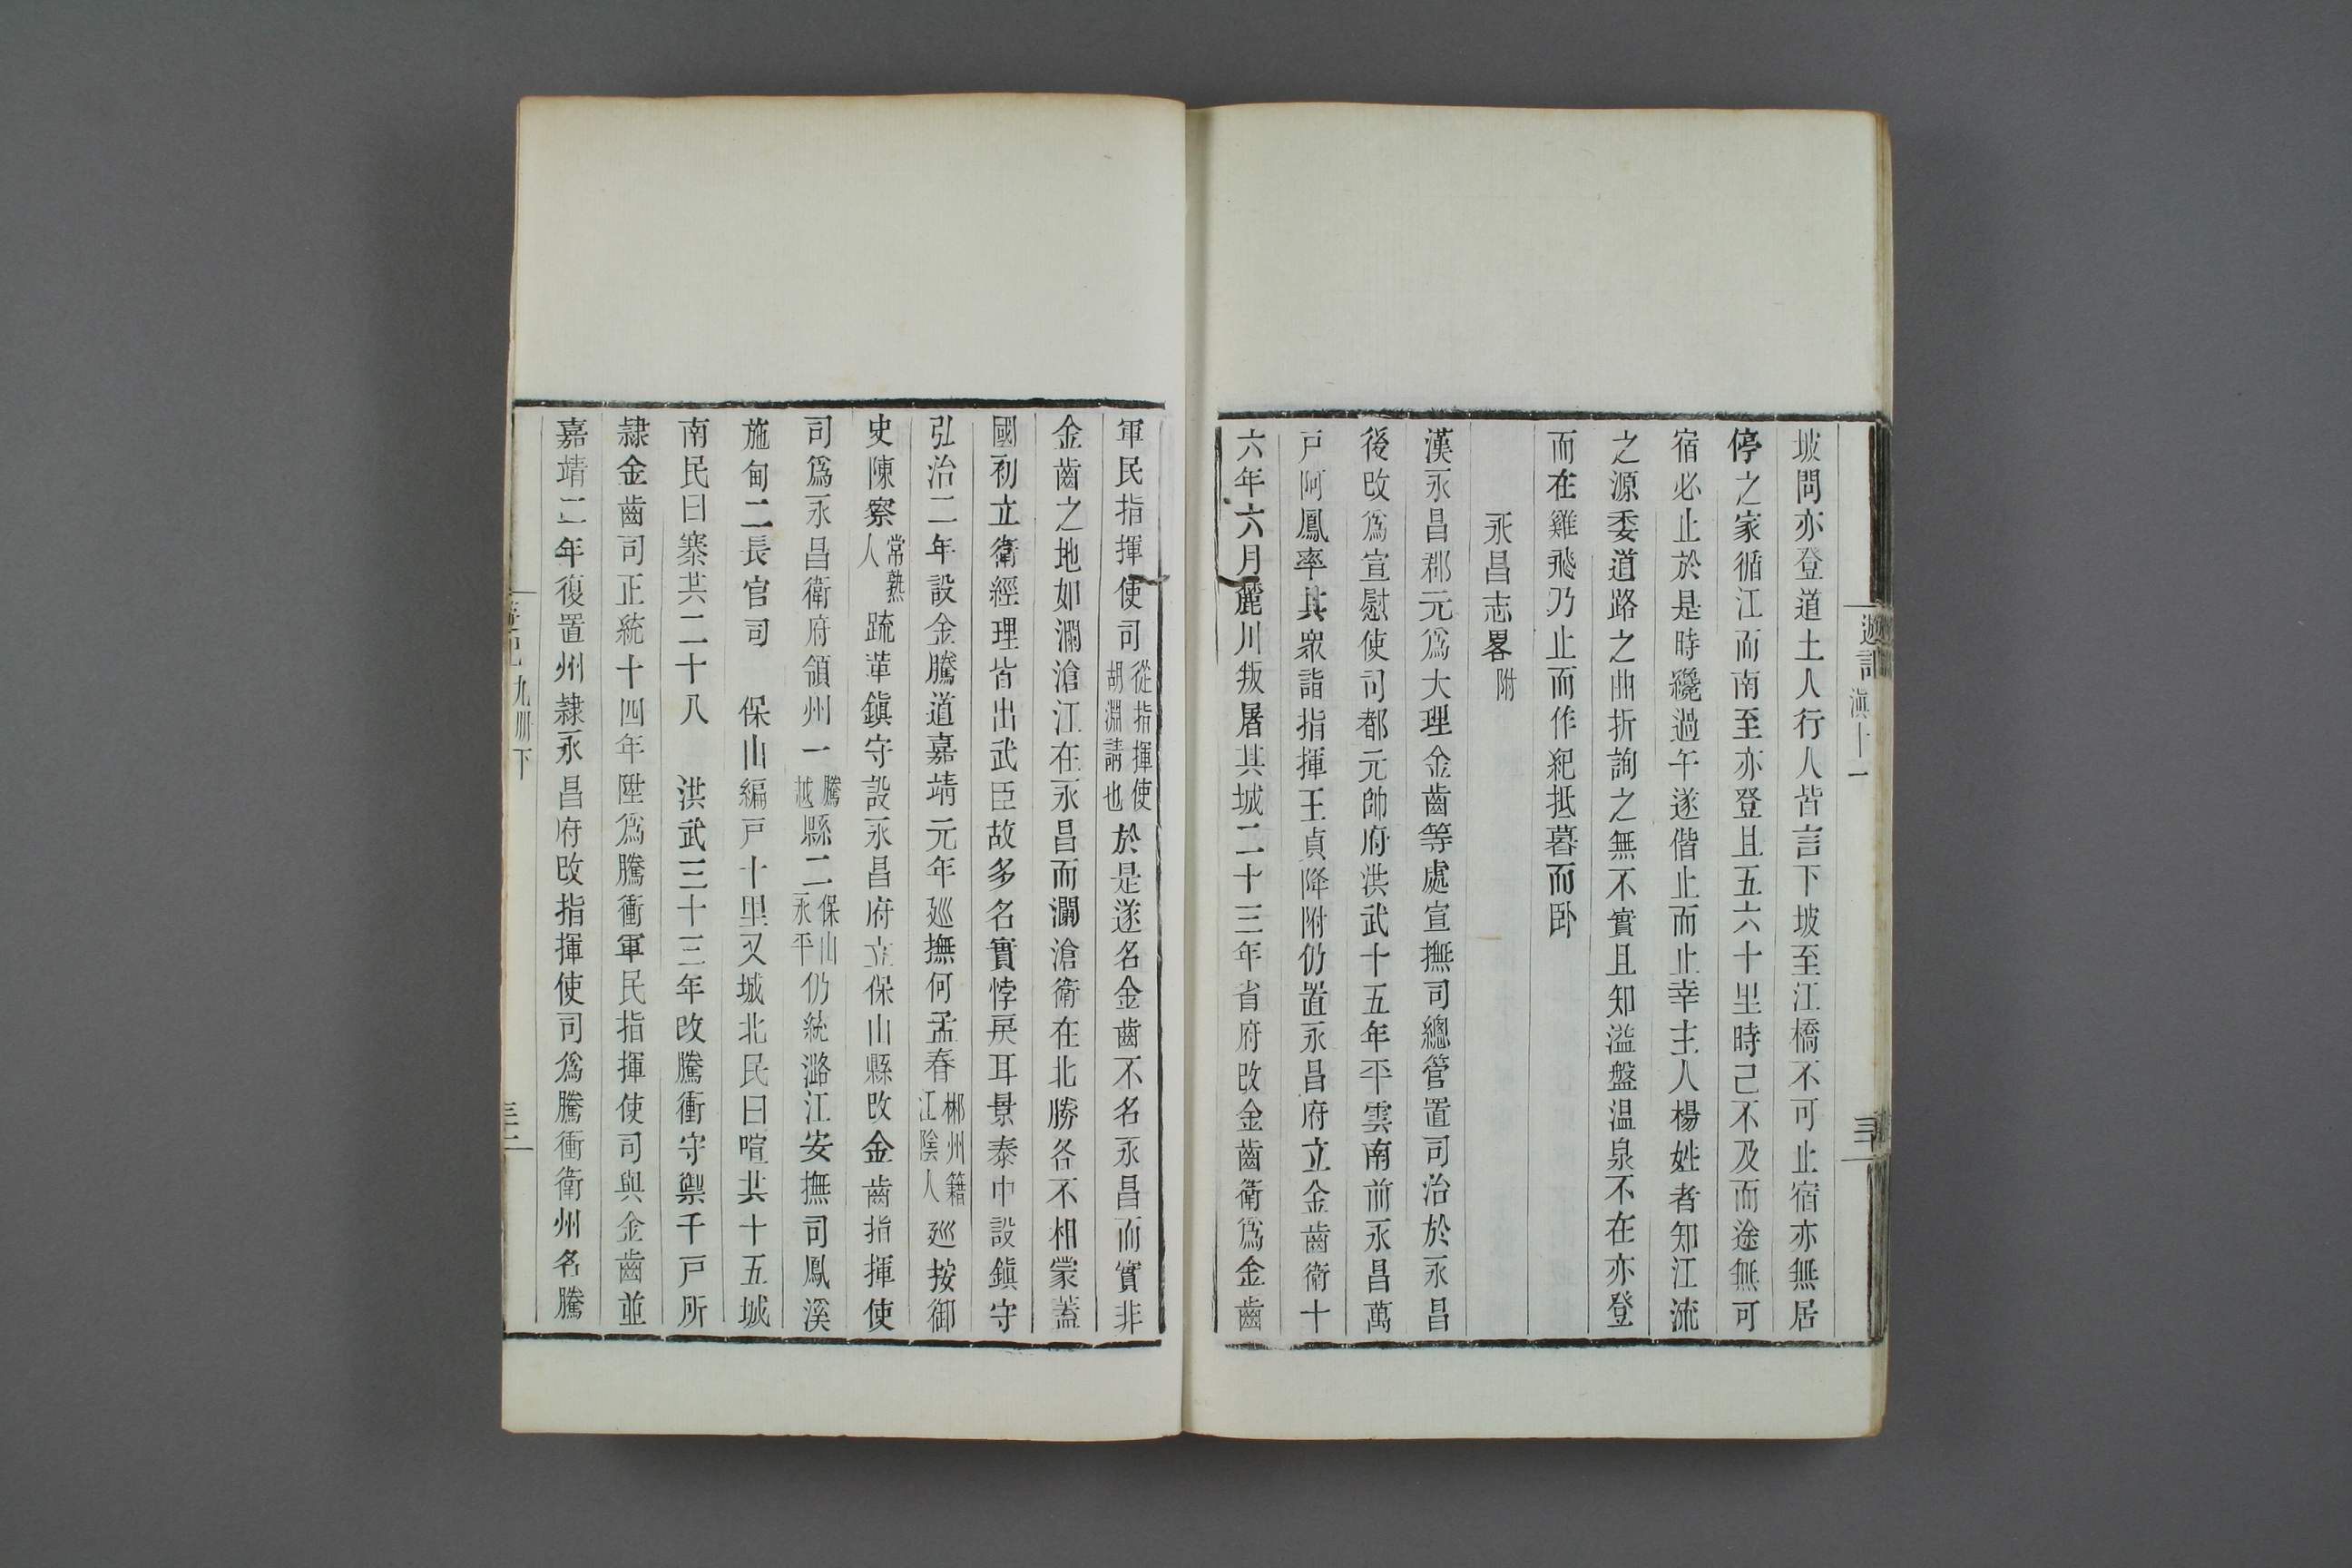 坡問亦登道土人行人皆言下坡至江橋不可止宿亦無居
停之家循江而南至亦登且五六十里時己不及而途無可
宿必止於是時纔過午遂偕止而止幸主人楊姓者知江流
之源委道路之曲折詢之無不實且知溢盤温泉不在亦登
而在雞飛乃止而作紀抵暮而卧
永昌志畧附
漢永昌郡元爲大理金齒等處宣撫司總管置司治於永昌
後改爲宣慰使司都元帥府洪武十五年平雲南前永昌萬
戸阿鳳率其衆詣指揮王貞降附仍置永昌府立金齒衛十
六年六月麓川叛屠其城二十三年省府改金齒衛爲金齒
軍民指揮使司從指揮使胡淵請也於是遂名金齒不名永昌而實非
金齒之地如瀾滄江在永昌而瀾滄衛在北勝各不相蒙蓋
國初立衛經理皆出武臣故多名實悖戾耳景泰中設鎮守
弘治二年設金騰道嘉靖元年廵撫何孟春郴州籍江陰人廵按御
史陳察常熟人疏革鎮守設永昌府立保山縣改金齒指揮使
司爲永昌衛府領州一騰越縣二保山永平仍統潞江安撫司鳳溪
施甸二長官司　保山編戸十里又城北民曰喧共十五城
南民曰寨共二十八　洪武三十三年改騰衝守禦千戸所
隸金齒司正統十四年陞爲騰衝軍民指揮使司與金齒並
嘉靖二年復置州隸永昌府改指揮使司爲騰衝衛州名騰
遊記
滇十一
九卌下